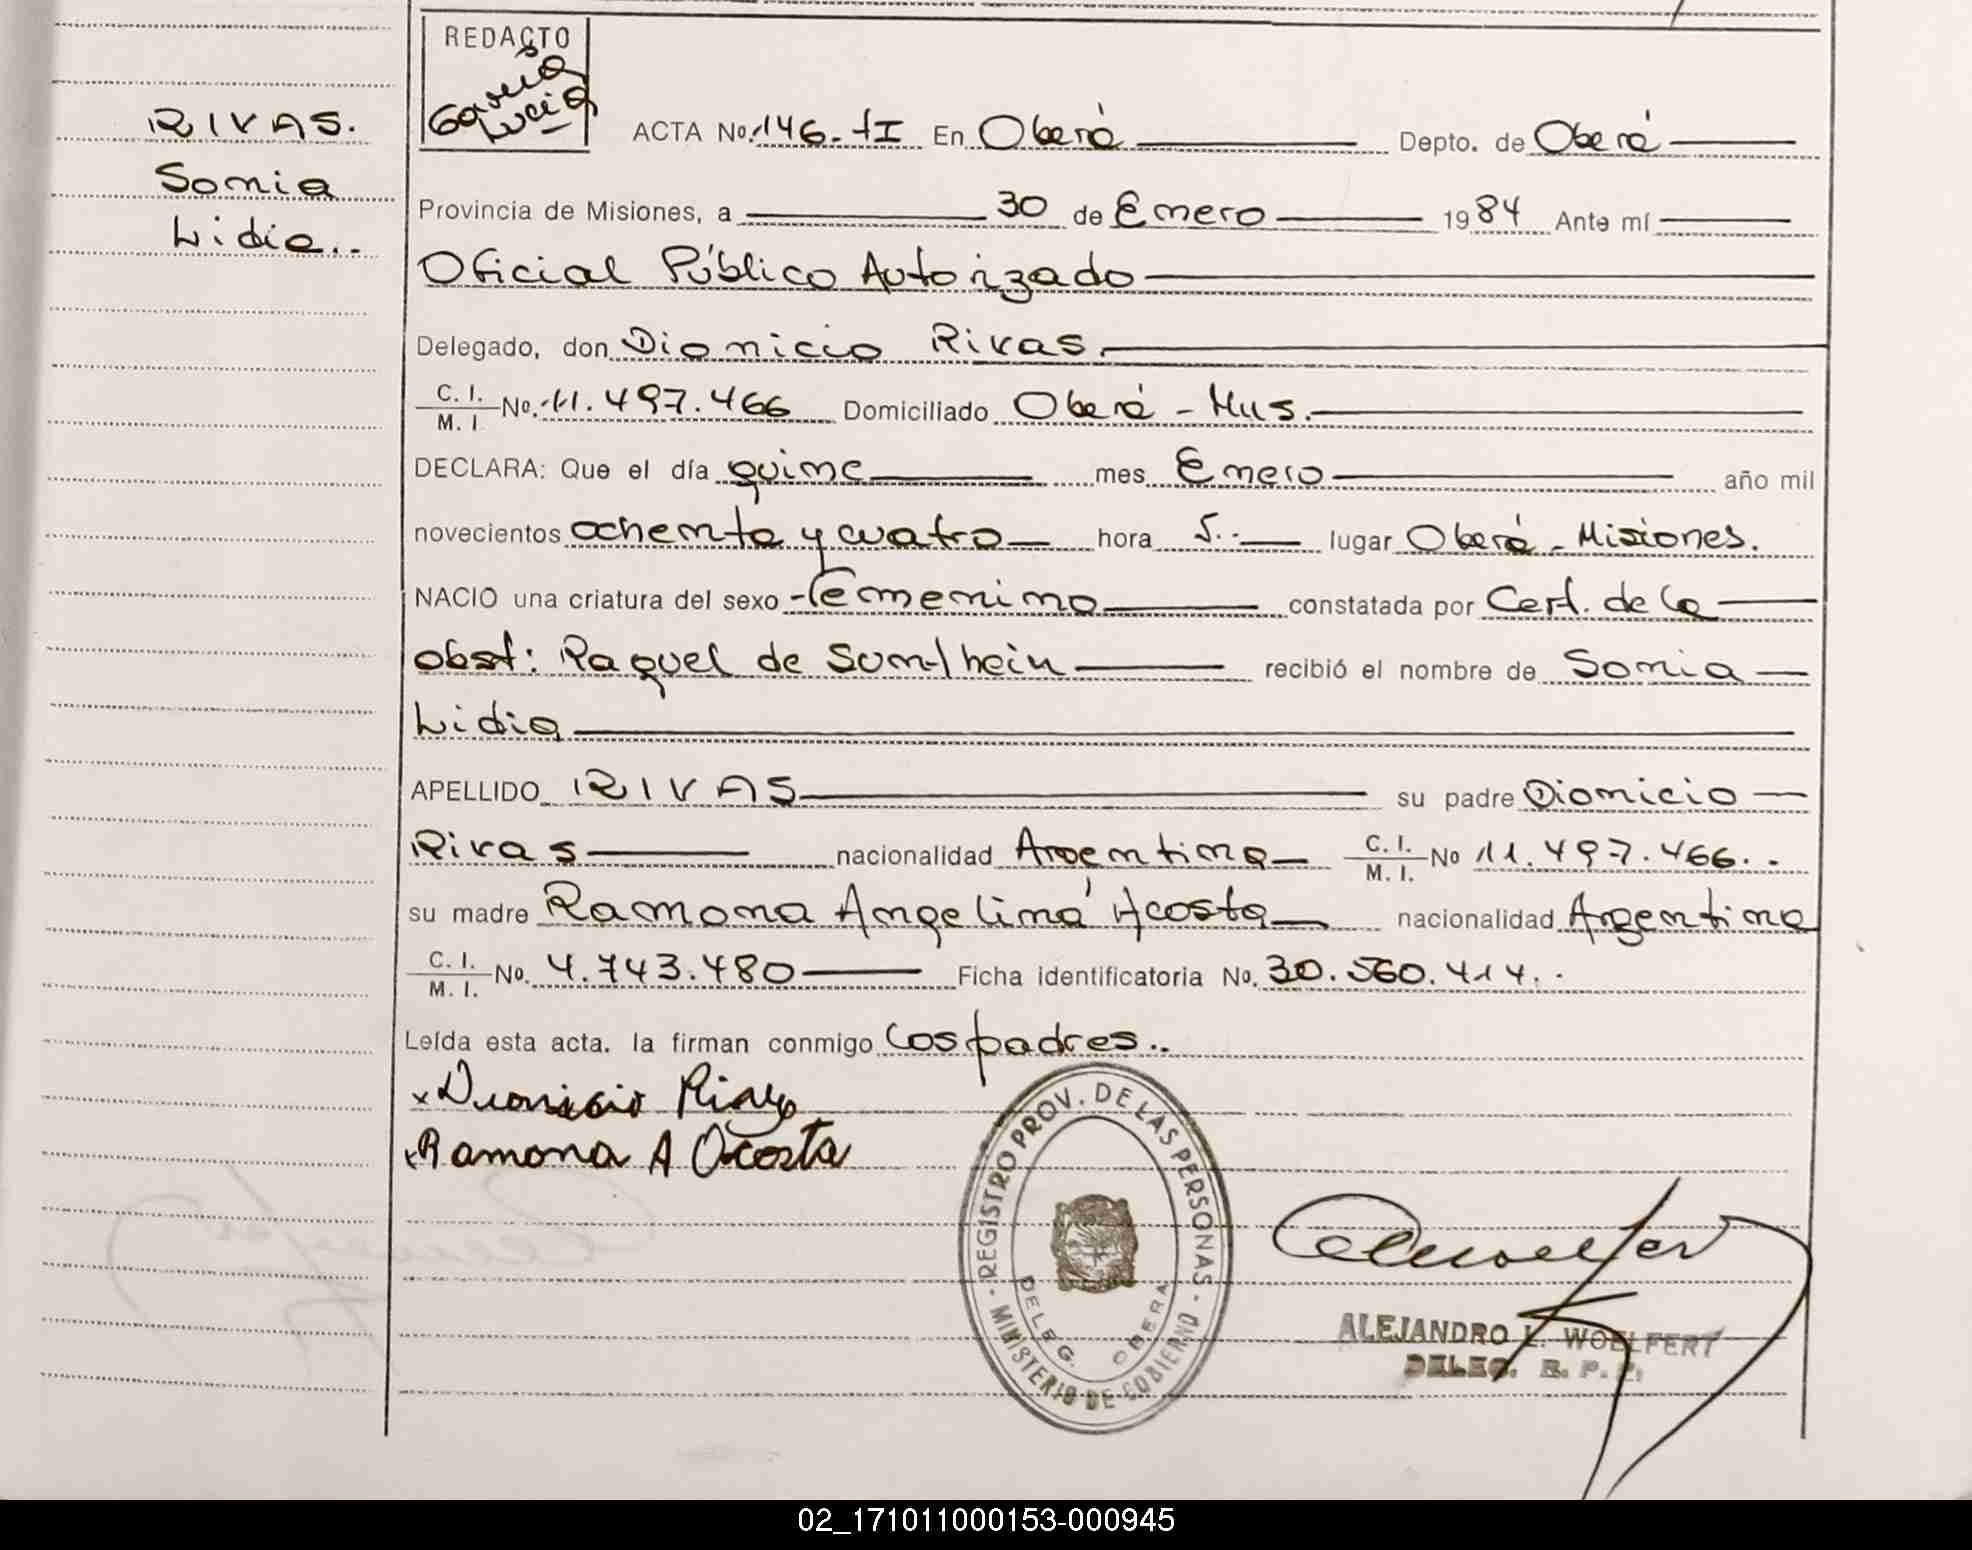 REDACTO
Garcia
Lucia
RIVAS.
Sonia
Lidia..
ACTA No. 146-tI En Oberá Depto. de Oberá
Provincia de Misiones, a 30 de Enero 1984 Ante mí
Oficial Público Autorizado
Delegado, don Dionicio Rivas.
C. I. / M. I. No. 11.497.466 Domiciliado Oberá - Mnes.
DECLARA: Que el día quince mes Enero año mil
novecientos ochenta y cuatro hora 5.- lugar Oberá - Misiones.
NACIO una criatura del sexo femenino constatada por Cert. de la
obst: Raquel de recibió el nombre de Sonia
Lidia
APELLIDO RIVAS su padre Dionicio
Rivas nacionalidad Argentina C. I. / M. I. No 11.497.466..
su madre Ramona Angelina Acosta nacionalidad Argentina
C. I. / M. I. No. 4.743.480 Ficha identificatoria No. 30.560.414..
Leída esta acta. la firman conmigo los padres..
x Dionicio Rivas
x Ramona A Acosta
REGISTRO PROV. DE LAS PERSONAS - MINISTERIO DE GOBIERNO -
DELEG. OBERA
ALEJANDRO L. WOELFERT
DELEG. R. P. P.
02_171011000153-000945